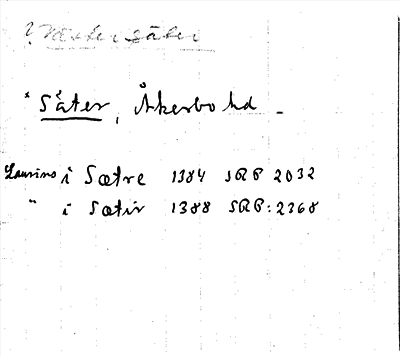 ? Västersäter
* Säter, Åkerbo hd -
Laurins i Sætre 1384 SRP 2032
" i Sætir 1388 SRP: 2368